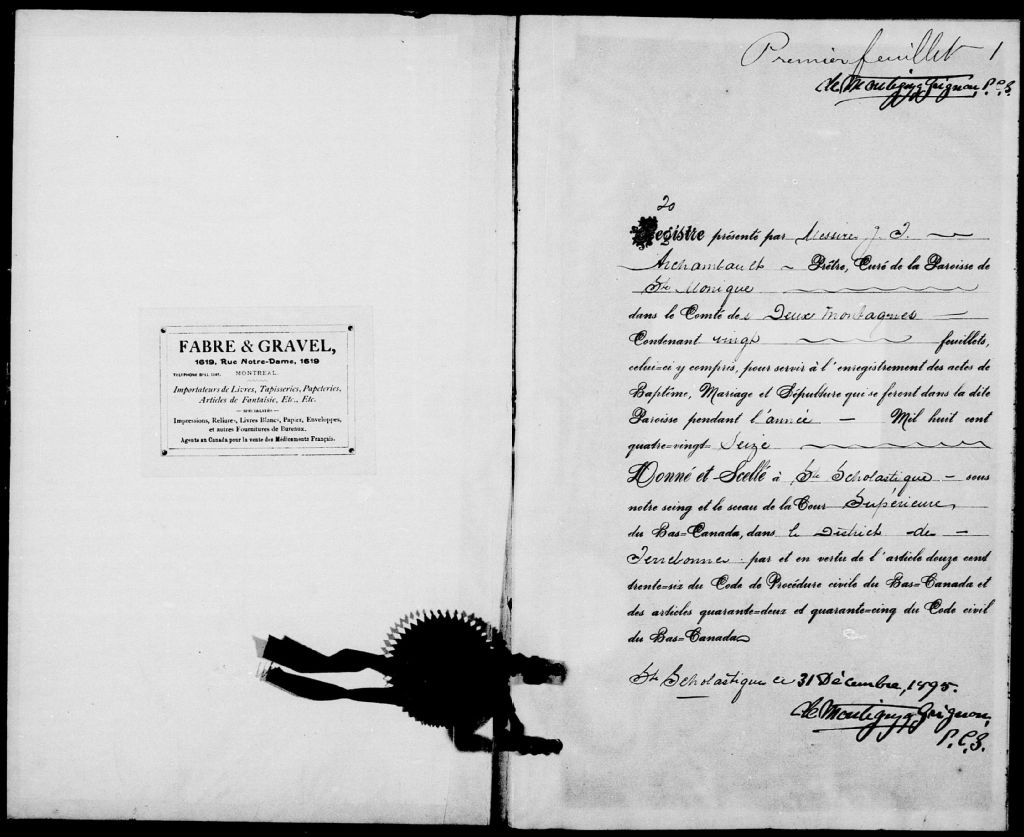 FABRE & GRAVEL,
1619, Rue Notre-Dame, 1619
MONTREAL.
Importateurs de Livres, Tapisseries, Papeteries,
Articles de Fantaisie, Etc., Etc.
— SPECIALITÉS —
Impressions, Reliures, Livres Blancs, Papier, Enveloppes,
et autres Fournitures de Bureaux.
Agents au Canada pour la vente des Médicaments Français.
Premier feuillet 1
de Montigny Grignon, P.C.S.
20
Registre présenté par Messire J.
Archambault Prêtre, Curé de la Paroisse de
Ste Monique
dans le Comté des Deux Montagnes
Contenant vingt feuillets,
celui-ci y compris, pour servir à l'enregistrement des actes de
Baptême, Mariage et Sépulture qui se feront dans la dite
Paroisse pendant l'année Mil huit cent
quatre=vingt= Seize
Donné et Scellé à Ste Scholastique sous
notre seing et le sceau de la Cour Supérieure,
du Bas=Canada, dans le District de
Terrebonne par et en vertu de l'article douze cent
trente=six du Code de Procédure civile du Bas=Canada et
des articles quarante=deux et quarante=cinq du Code civil
du Bas=Canada
Ste Scholastique ce 31 Décembre, 1895.
de Montigny Grignon,
P.C.S.